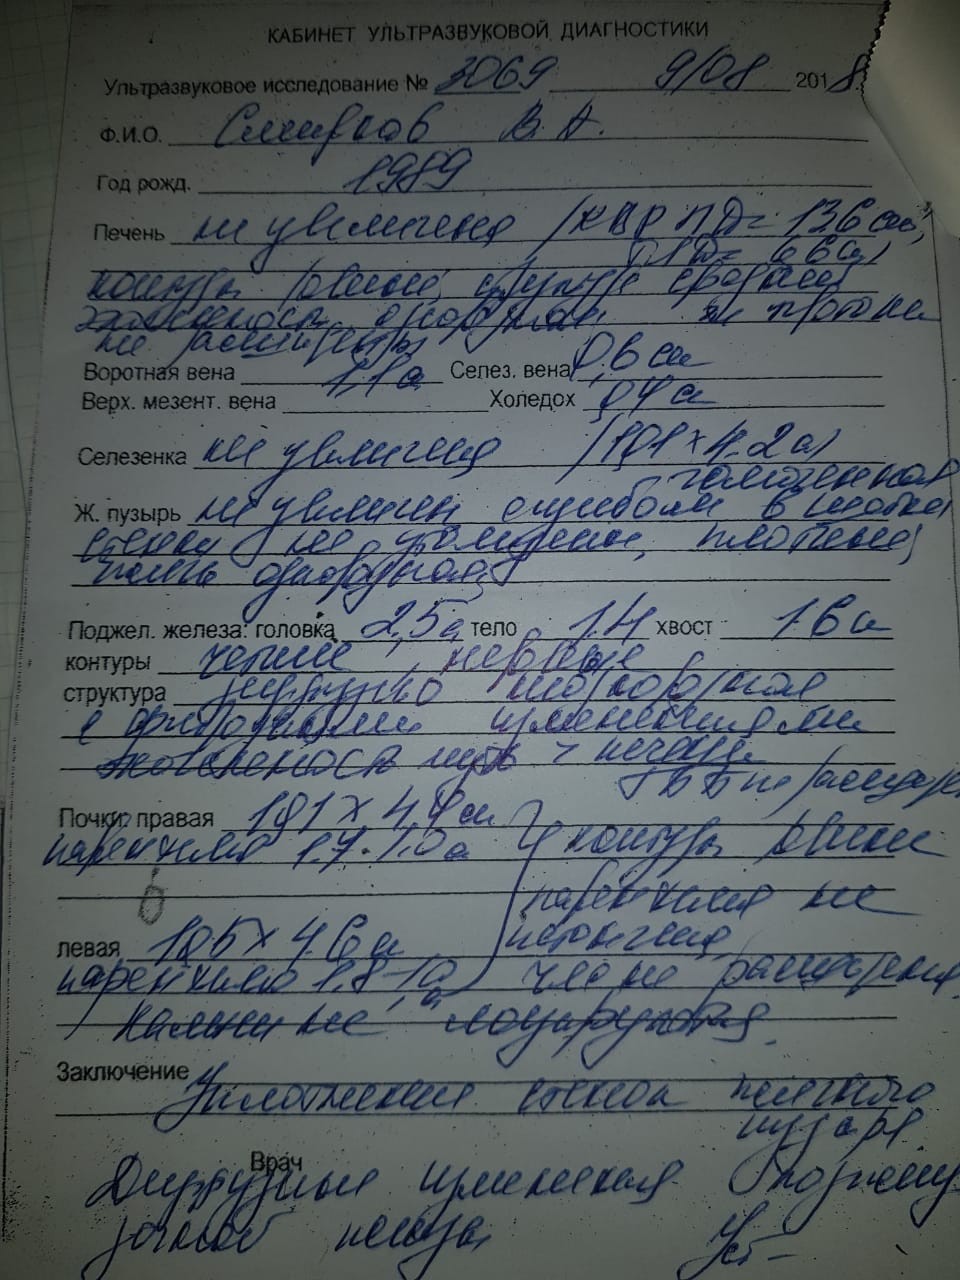 КАБИНЕТ УЛЬТРАЗВУКОВОЙ ДИАГНОСТИКИ
Ультразвуковое исследование № 3069 9/08 2018
Ф.И.О. Смирнов В. А.
Год рожд. 1989
Печень не увеличена /КВР ПД= 13.6 см,
ЛД= 6.6 см/
контуры ровные, структура средней
эхогенности, однородная протоки
не расширены
Воротная вена 1.1 см Селез. вена 0,6 см
Верх. мезент. вена Холедох 0,4 см
Селезенка не увеличена /10,1 х 4.2 см/
гомогенная
Ж. пузырь не увеличен с изгибом в шейке
стенки не утолщены, плотные,
полость однородная
Поджел. железа: головка 2,5 см тело 1.4 хвост 1.6 см
контуры четкие, неровные
структура диффузно неоднородная
с фиброзными изменениями
эхогенность печени
не расширен
Почки: правая 10,1 х 4,4 см контуры ровные
паренхима 1.7-1.0 см
паренхима не
левая 10,5 х 4.6 см истончена,
паренхима 1.8-1,0 см чле не расширена
камни не лоцируются.
Заключение
Уплотнения стенок желчного
пузыря.
Врач
Диффузные изменения поджелу
дочной железы